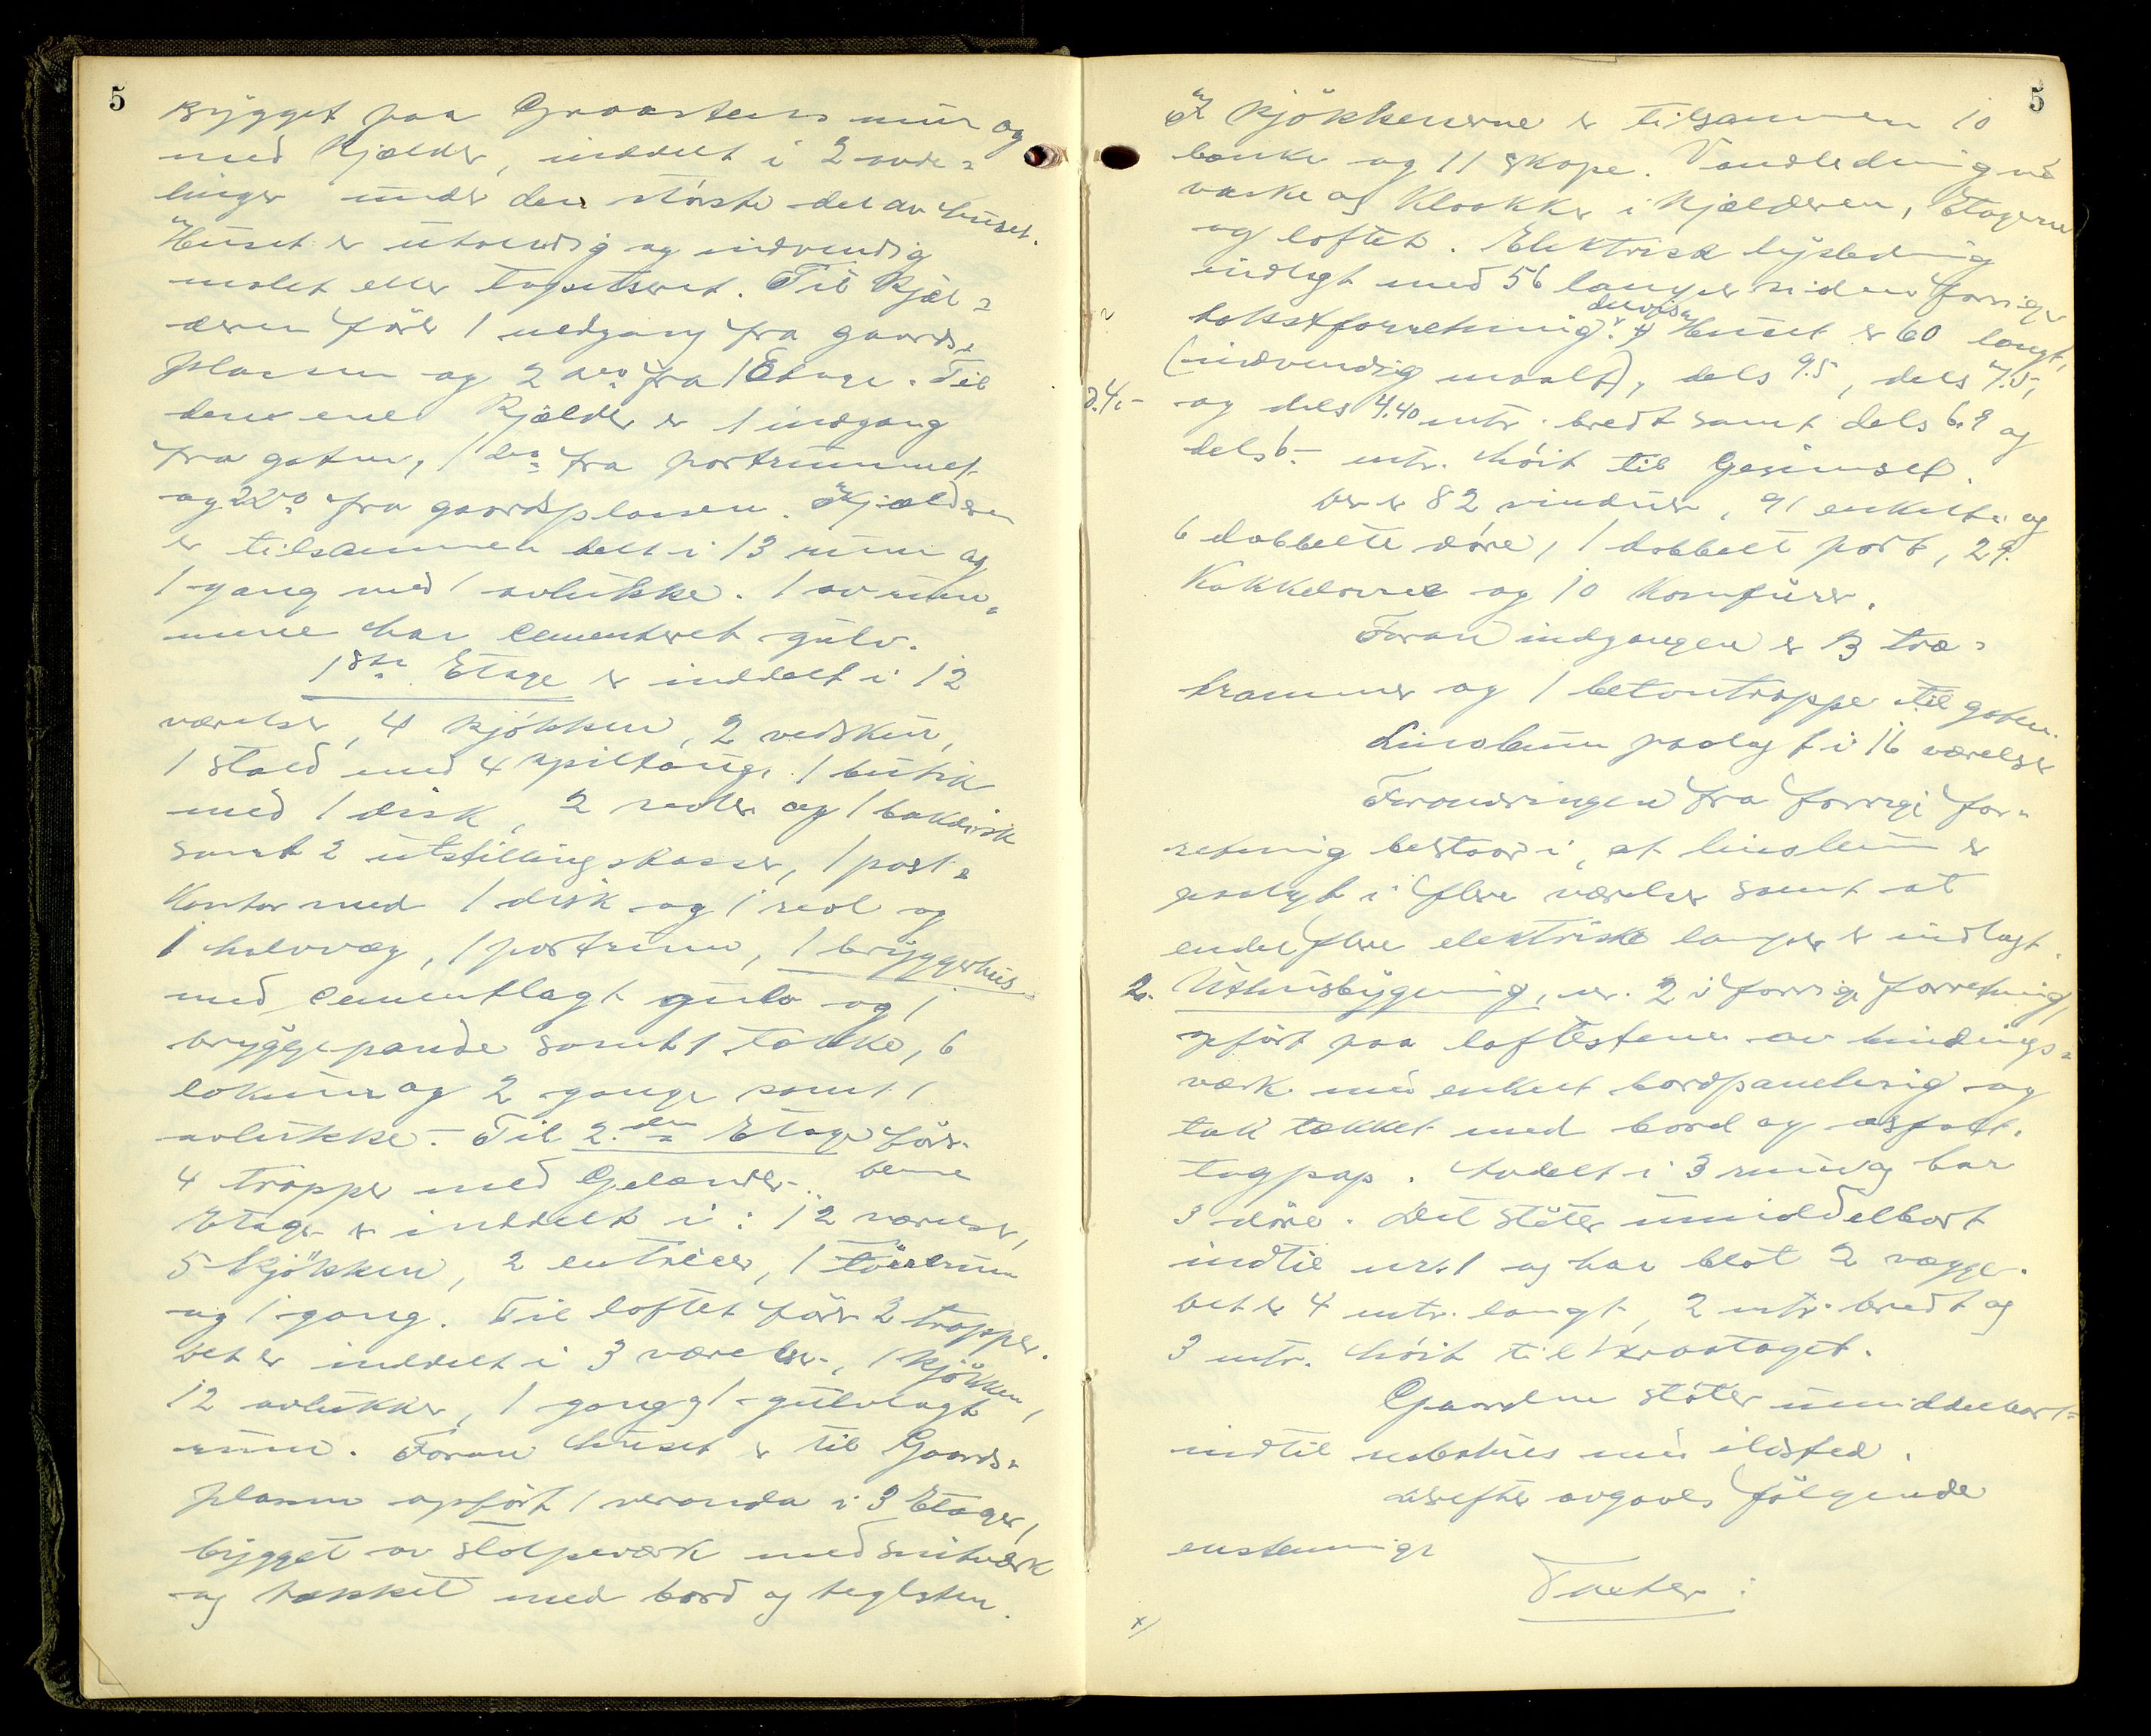 5
Bygget paa Graastens mur og
med Kjælder, inddelt i 2 avde=
linger under den største del av huset.
Huset er utvendig og indvendig
malet eller tapetseret. Til Kjæl=
deren fører 1 nedgang fra gaards=
plassen og 2 do fra 1 Etage. Til
den ene Kjælder er 1 indgang
fra gaten, 1 do fra portrummet
og 2 do fra gaardsplassen. Kjælderen
er tilsammen delt i 13 rum og
1 gang med 1 avlukke. 1 av rum=
mene har cementeret gulv.
1ste Etage er inddelt i 12
værelser, 4 kjøkken, 2 vedskur,
1 stald med 4 spiltaug, 1 butik
med 1 disk, 2 reoler og 1 bakdisk
samt 2 utstillingskasser, 1 post=
Kontor med 1 disk og 1 reol og
1 halvvæg, 1 portrum, 1 bryggerhus
med cementlagt gulv og 1
bryggepande samt 1 takke, 6
lokumer og 2 gange samt 1
avlukke. Til 2.den Etage fører
4 trapper med Gelænder. Denne
Etage er inddelt i: 12 værelser,
5 kjøkken, 2 entreer, 1 tørrerum
og 1 gang. Til loftet fører 2 trapper.
Det er inddelt i 3 værelser, 1 kjøkken,
12 avlukker, 1 gang og 1 gulvlagt
rum. Foran huset er til Gaards=
plassen opført 1 veranda i 3 Etager,
bygget av stolpeværk med snitværk
og tækket med bord og teglsten.
5
I Kjøkkenerne er tilsammen 10
benke og 11 skape. Vandledning med
vaske og Kloakker i Kjælderen, Etagerne
og loftet. Elektrisk lysledning
indlagt med 56 lamper siden forrige
delvis
takstforretning. Huset er 60 langt,
(indvendig maalt), dels 9.5, dels 7.5,
d.4.-
og dels 4.40 mtr. bredt samt dels 6.9 og
dels 6.- mtr. høit til Gesimset.
Der er 82 vinduer, 91 enkelte og
6 dobbelte døre, 1 dobbelt port, 29
Kakkelovne og 10 Komfurer.
Foran indgangen er 3 træ=
trammer og 1 betontrappe til gaten.
Linoleum paalagt i 16 værelser
Forandringen fra forrige for=
retning bestaar i, at linoleum er
paalagt i flere værelser samt at
endel flere elektriske lamper er indlagt.
2. Uthusbygning, nr. 2 i forrige forretning,
opført paa løftestene av bindings=
værk med enkelt bordpanelering og
tak tækket med bord og asfalt.
tagpap. Inddelt i 3 rum og har
3 døre. Det støter umiddelbart
indtil nr. 1 og har blot 2 vægge.
Det er 4 mtr. langt, 2 mtr. bredt og
3 mtr. høit til Skraataget.
Gaarden støter umiddelbart
indtil nabohus med ildsted.
Derefter avgaves følgende
enstemmige
Takster:
x/